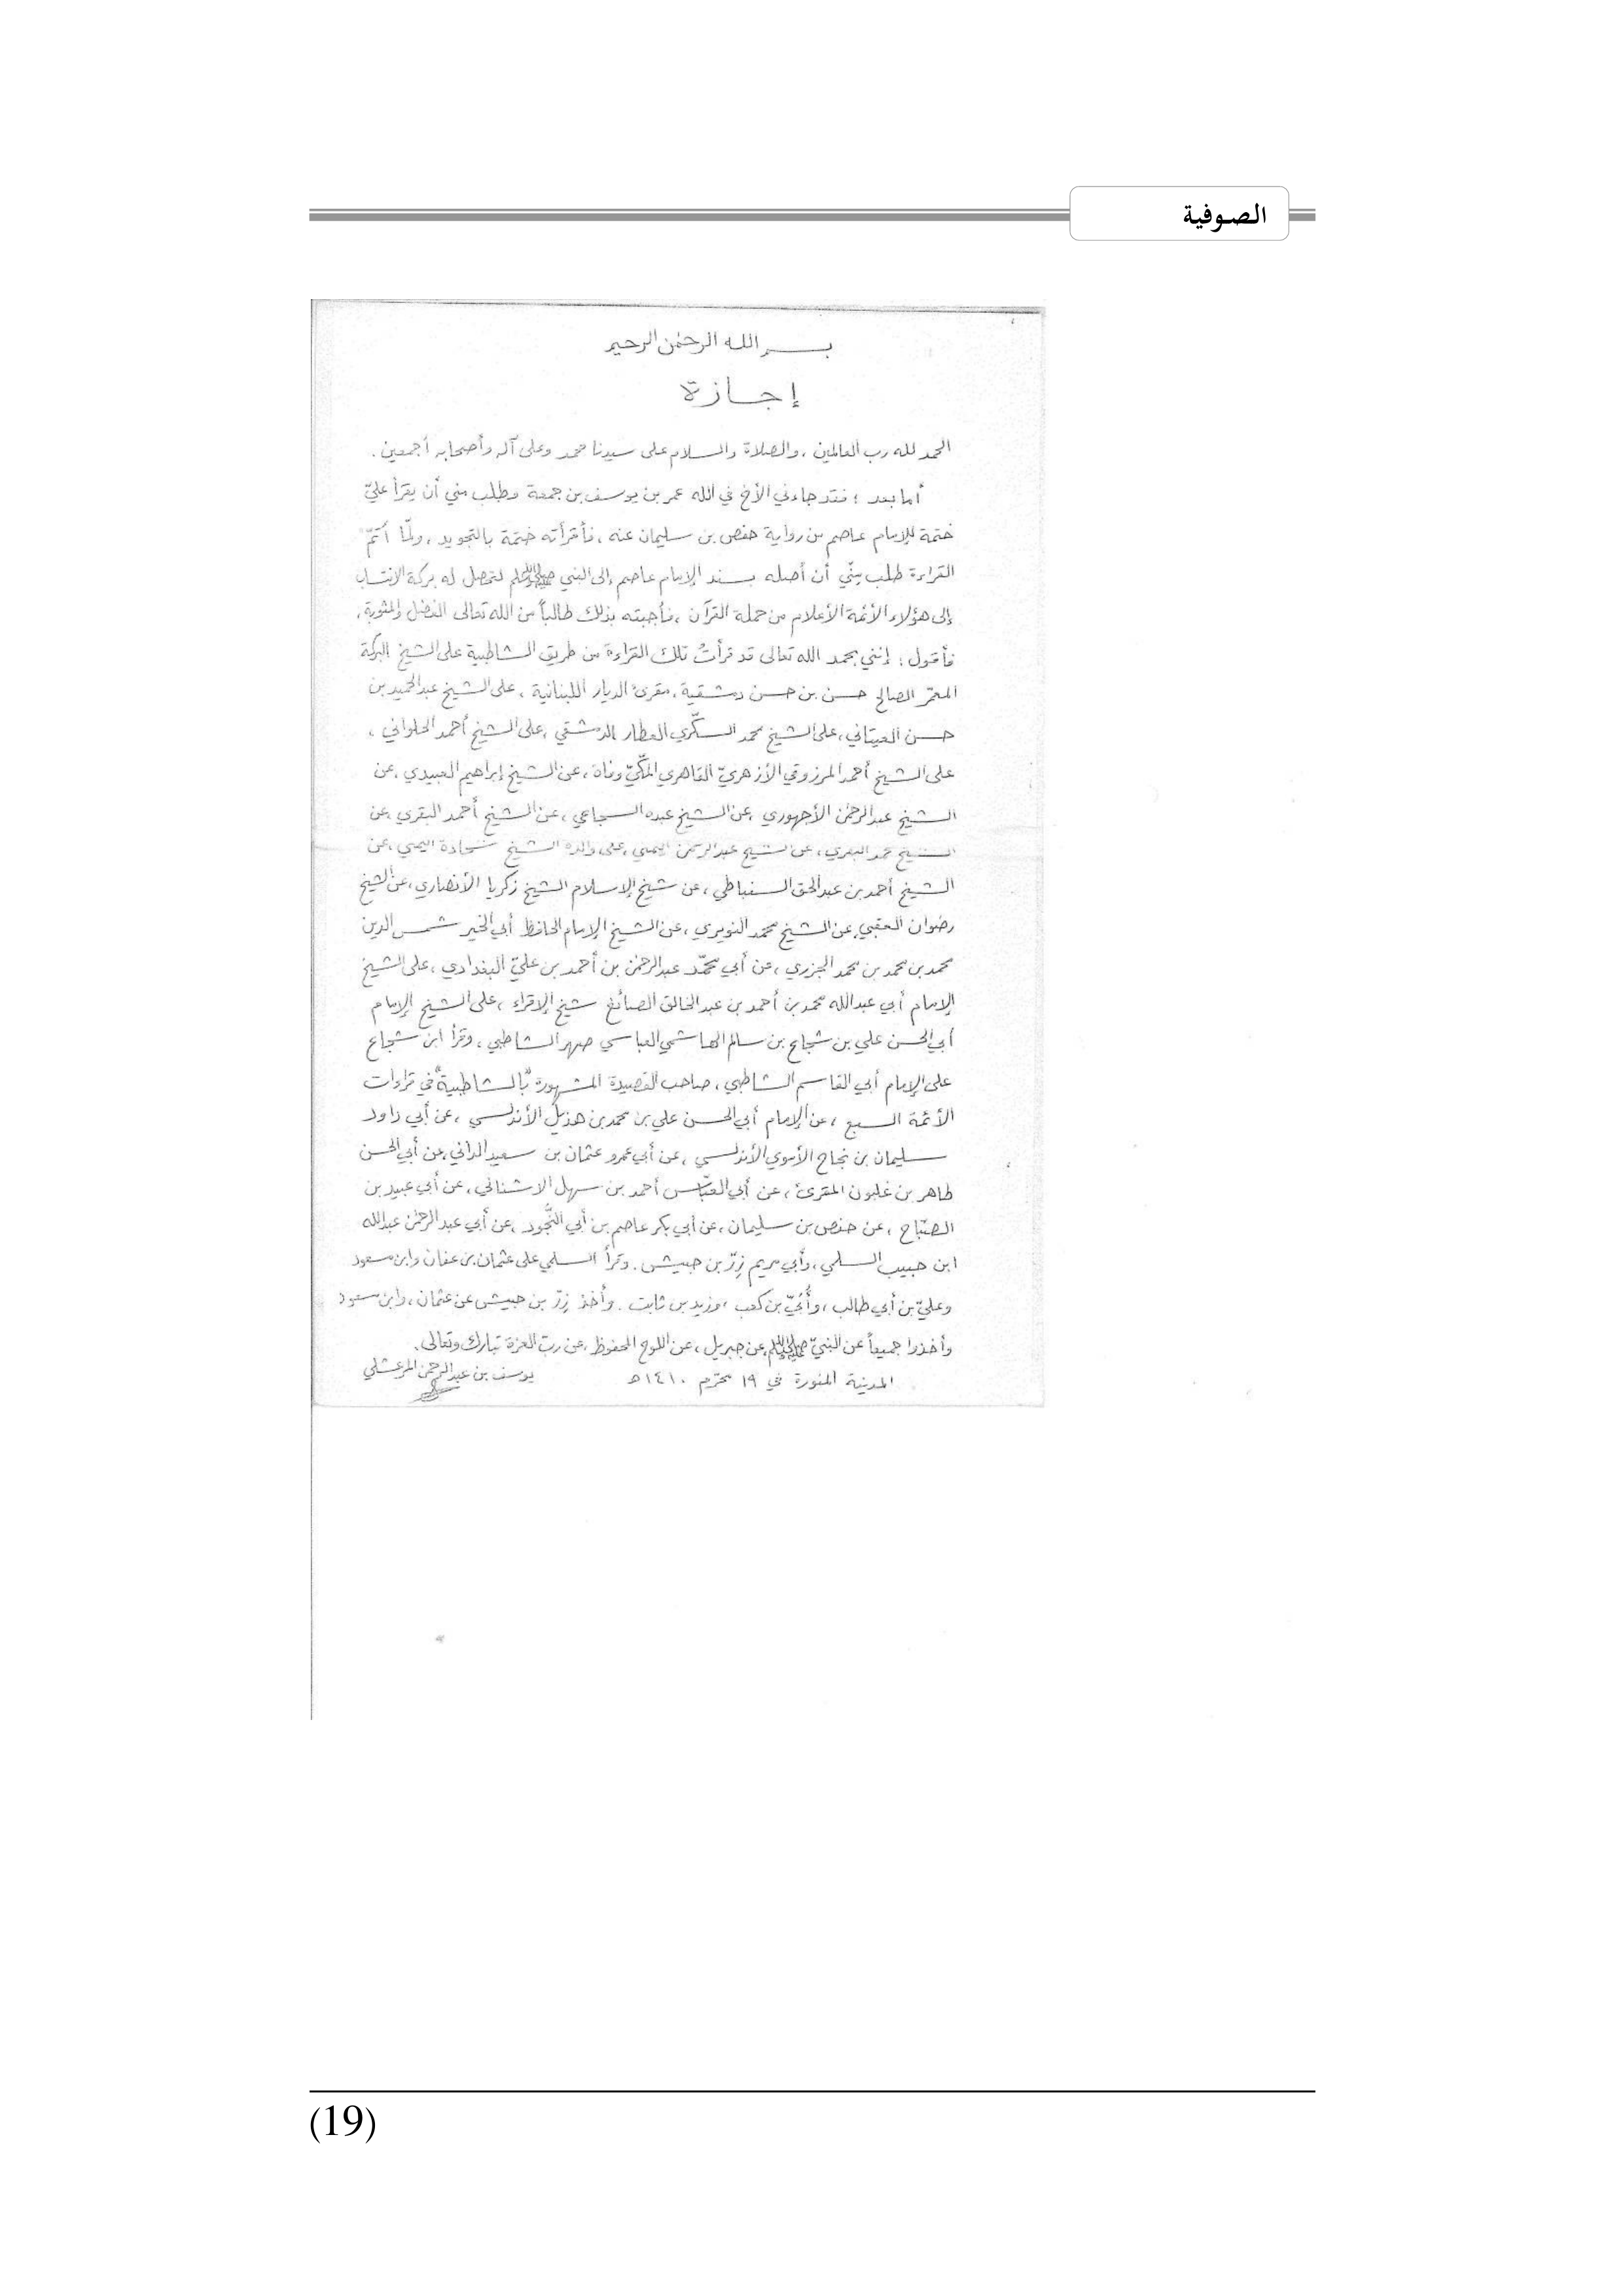 الصوفية
بسم الله الرحمن الرحيم
إجازة
الحمد لله رب العالمين ، والصلاة والسلام على سيدنا محمد وعلى آله وأصحابه أجمعين .
أما بعد ؛ فقد جاءني الأخ في الله عمر بن يوسف بن جمعة وطلب مني أن يقرأ عليّ
ختمة للإمام عاصم من رواية حفص بن سليمان عنه ، فأقرأته ختمة بالتجويد ، ولمّا أتمّ
القراءة طلب منّي أن أصله بسند الإمام عاصم إلى النبي ﷺ لتحصل له بركة الانتساب
إلى هؤلاء الأئمة الأعلام من حملة القرآن ، فأجبته بذلك طالباً من الله تعالى الفضل والمثوبة .
فأقول : إنني بحمد الله تعالى قد قرأتُ تلك القراءة من طريق الشاطبية على الشيخ البركة
المعمّر الصالح حسن بن حسن دمشقية ، مقرئ الديار اللبنانية ، على الشيخ عبدالحميد بن
حسن العيتاني ، على الشيخ محمد السكّري العطار الدمشقي ، على الشيخ أحمد الحلواني ،
على الشيخ أحمد المرزوقي الأزهريّ القاهري المكّيّ وفاة ، عن الشيخ إبراهيم العبيدي ، عن
الشيخ عبدالرحمن الأجهوري ، عن الشيخ عبده السجاعي ، عن الشيخ أحمد البقري ، عن
الشيخ محمد البقري ، عن الشيخ عبدالرحمن اليمني ، على والده الشيخ شحادة اليمني ، عن
الشيخ أحمد بن عبدالحق السنباطي ، عن شيخ الإسلام الشيخ زكريا الأنصاري ، عن الشيخ
رضوان العقبي ، عن الشيخ محمد النويري ، عن الشيخ الإمام الحافظ أبي الخير شمس الدين
محمد بن محمد بن محمد الجزري ، عن أبي محمّد عبدالرحمن بن أحمد بن عليّ البغدادي ، على الشيخ
الإمام أبي عبدالله محمد بن أحمد بن عبدالخالق الصائغ شيخ الإقراء ، على الشيخ الإمام
أبي الحسن علي بن شجاع بن سالم الهاشمي العباسي صهر الشاطبي ، وقرأ ابن شجاع
على الإمام أبي القاسم الشاطبي ، صاحب القصيدة المشهورة "بالشاطبية" في قراءات
الأئمة السبع ، عن الإمام أبي الحسن علي بن محمد بن هذيل الأندلسي ، عن أبي داود
سليمان بن نجاح الأموي الأندلسي ، عن أبي عمرو عثمان بن سعيد الداني ، عن أبي الحسن
طاهر بن غلبون المقرئ ، عن أبي العبّاس أحمد بن سهل الاشناني ، عن أبي عبيد بن
الصبّاح ، عن حفص بن سليمان ، عن أبي بكر عاصم بن أبي النَّجود ، عن أبي عبدالرحمن عبدالله
ابن حبيب السلمي ، وأبي مريم زِرّ بن حبيش . وقرأ السلمي على عثمان بن عفان وابن مسعود
وعليّ بن أبي طالب ، وأُبَيّ بن كعب ، وزيد بن ثابت . وأخذ زِرّ بن حبيش عن عثمان ، وابن مسعود
وأخذوا جميعاً عن النبيّ ﷺ عن جبريل ، عن اللوح المحفوظ ، عن ربّ العزة تبارك وتعالى .
المدينة المنورة في ١٩ محرّم ١٤١٠هـ يوسف بن عبدالرحمن المرعشلي
(19)